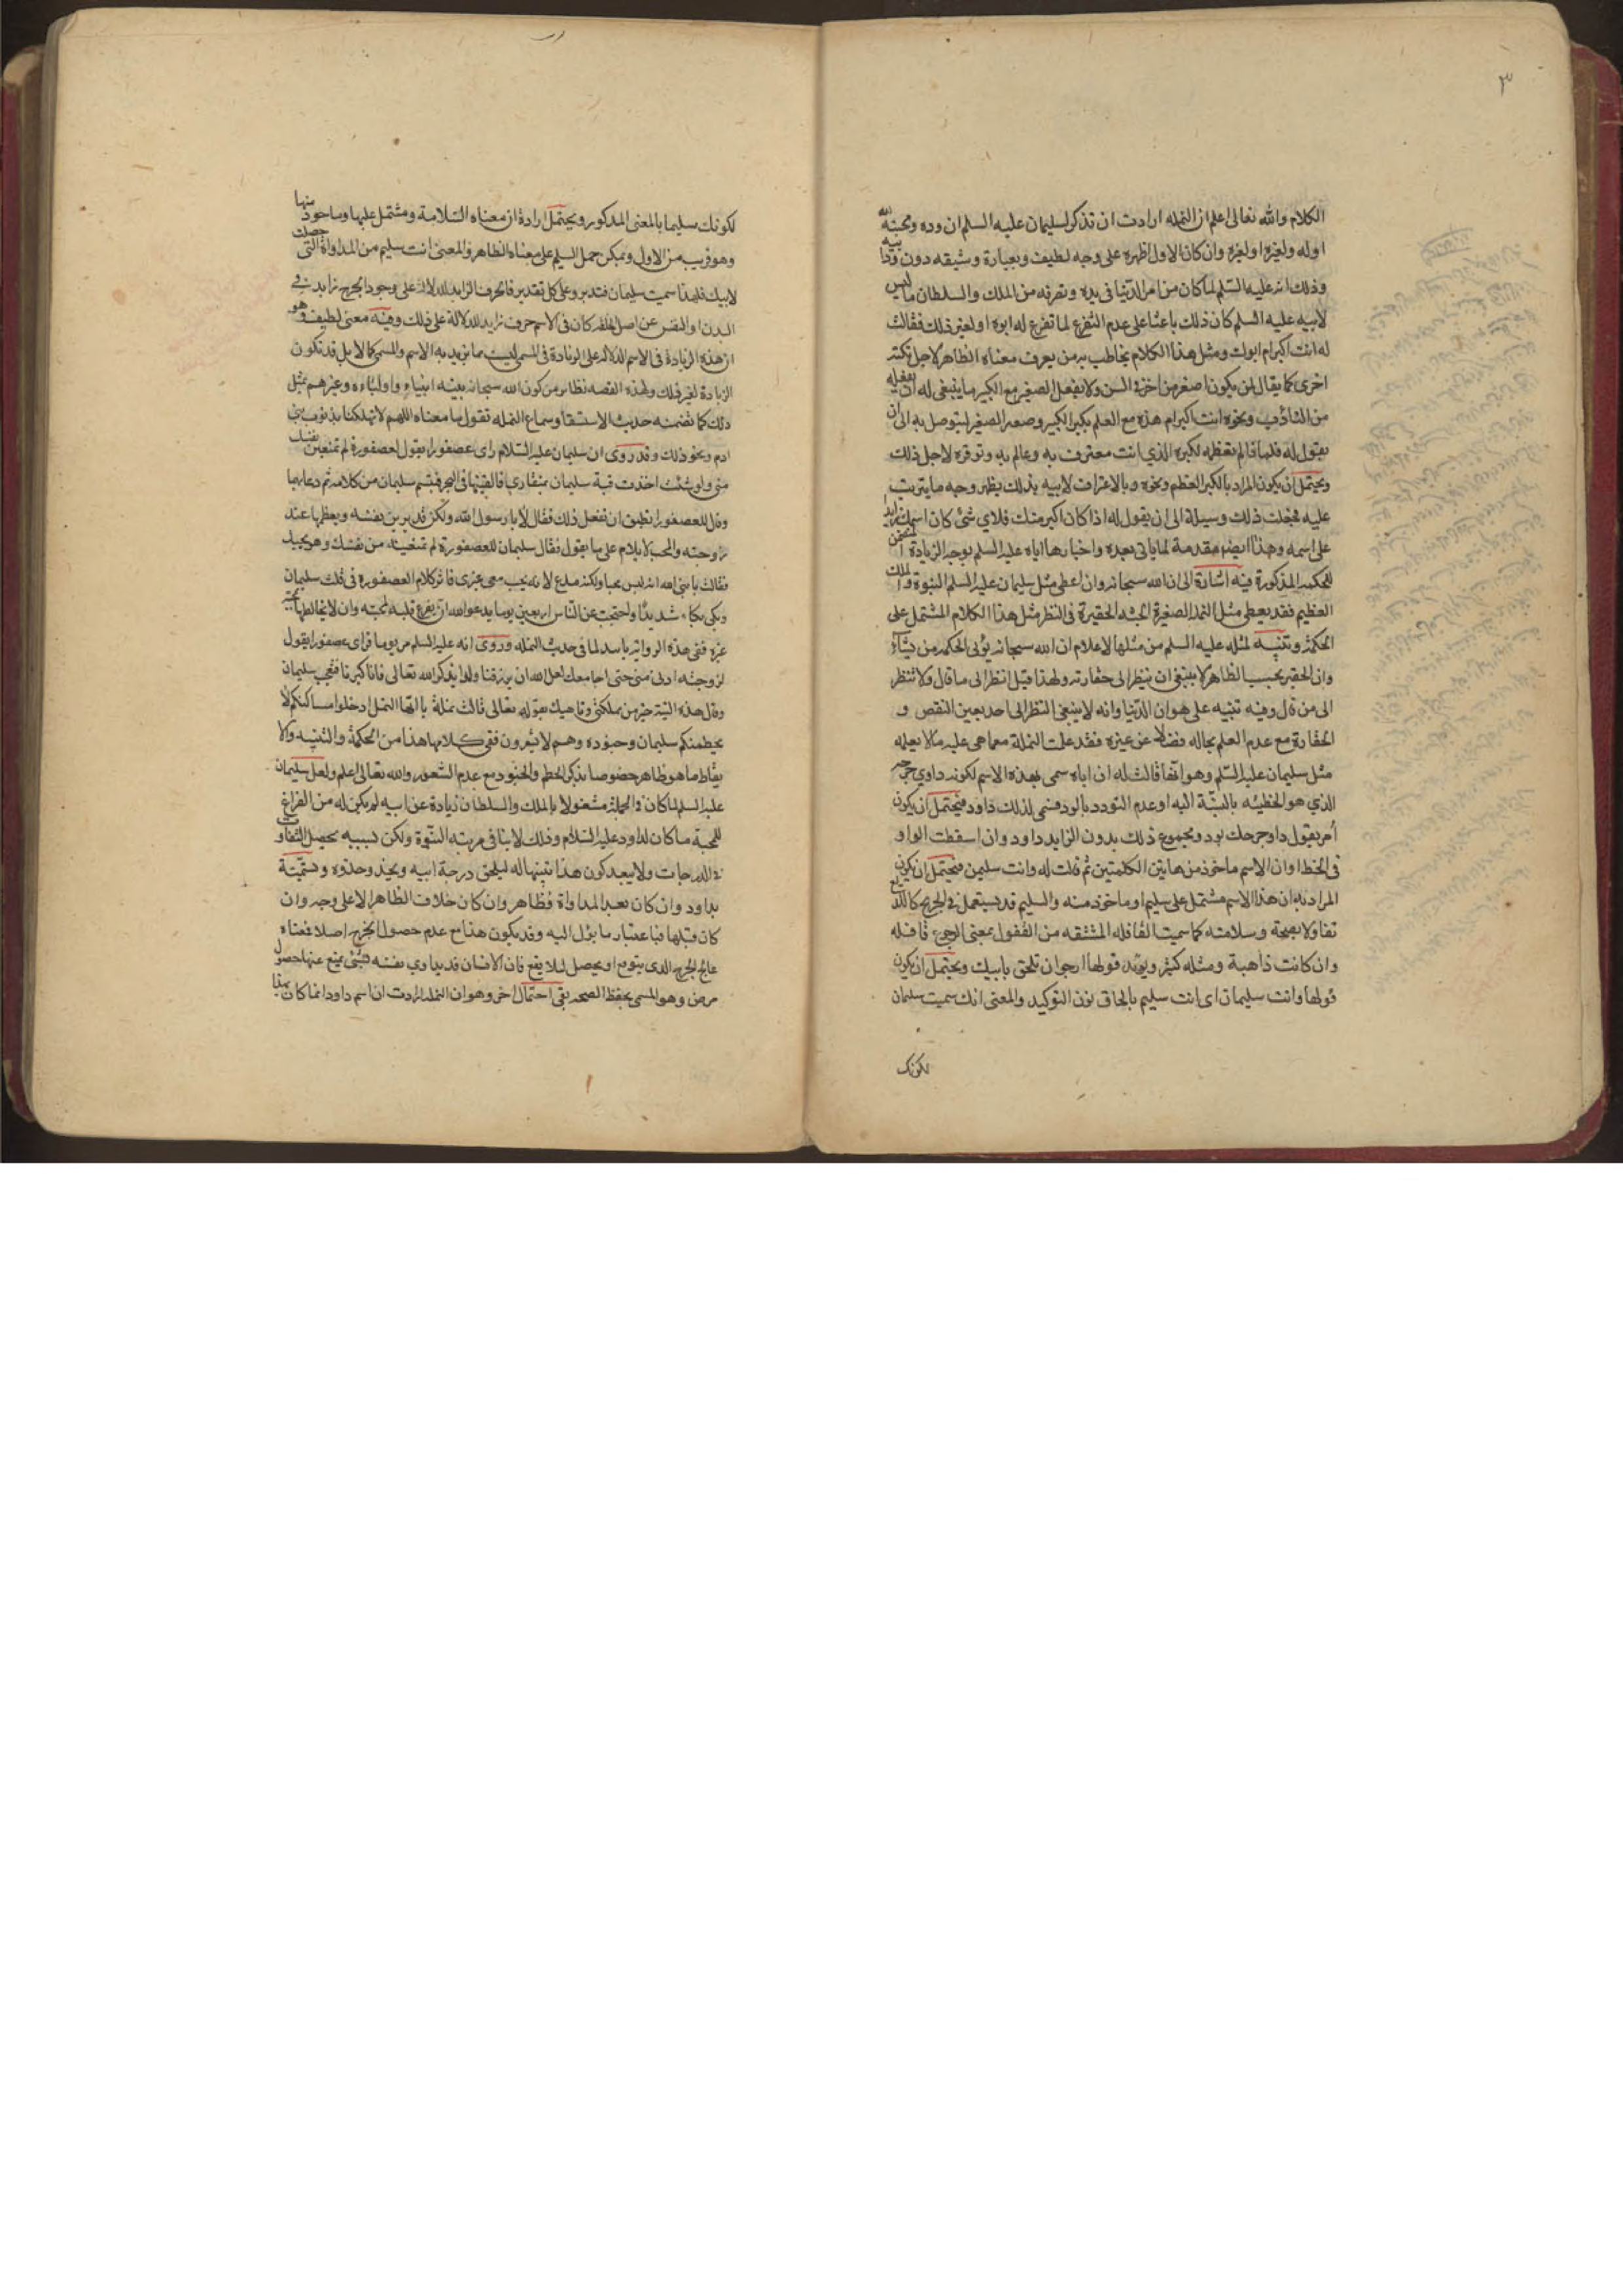 ٣
الكلام والله تعالى اعلم ان النمله ارادت ان تذكر لسليمان عليه السلم ان وده ومحبته لله
او له ولغيره او لغيره وان كان الاول اظهره على وجه لطيف وبعبارة وشيقه دون
وذلك انه عليه السلم لما كان من امر الدنيا في يده وتصرفه من الملك والسلطان ما ليس
لابيه عليه السلم كان ذلك باعثا على عدم التفرغ لما تفرغ له ابوه او لغير ذلك فقالت
له انت اكبر ام ابوك ومثل هذا الكلام يخاطب به من يعرف معناه الظاهر لاجل نكتة
اخرى كما يقال لمن يكون اصغر من اخر في السن ولا يفعل الصغير مع الكبير ما ينبغي له ان يفعله
من التادب ونحوه انت اكبر ام هذه مع العلم بكبر الكبير وصغر الصغير ليتوصل به الى ان
يقول له فلماذا لم تعظمه لكبره الذي انت معترف به وعالم به وتوقره لاجل ذلك
ويحتمل ان يكون المراد بالكبر العظم ونحوه وبالاعتراف لابيه بذلك يظهر وجه ما يترتب
عليه فجعلت ذلك وسيلة الى ان يقول له اذا كان اكبر منك فلاي شئ كان اسمك زايد
على اسمه وهذا ايضا مقدمة لما ياتي بعده واخبارها اياه عليه السلم بوجه الزيادة المتضمن
للحكمه المذكورة فيه اشارة الى ان الله سبحانه وان اعطى مثل سليمان عليه السلم النبوة والملك
العظيم فقد يعطى مثل النملة الصغيرة الجثه الحقيرة في النظر مثل هذا الكلام المشتمل على
الحكمة وتنبيه لمثله عليه السلم من مثلها لاعلام ان الله سبحانه يؤتى الحكمه من يشاء
وان الحقير بحسب الظاهر لا ينبغى ان ينظر الى حقارته ولهذا قيل انظر الى ما قال ولا تنظر
الى من قال وفيه تنبيه على هوان الدنيا وانه لا ينبغى النظر الى احد بعين النقص و
الحقارة مع عدم العلم بحاله فضلا عن غيره فقد علمت النملة مع ما هى عليه ما لا يعلمه
مثل سليمان عليه السلم وهو انها قالت له ان اباه سمى بهذه الاسم لكونه داوي جرحه
الذي هو الخطيئه بالنسبة اليه او عدم التودد بالود فسمى لذلك داود فيحتمل ان يكون
امر يقول داو جرحك بود ومجموع ذلك بدون الزايد داود وان اسقطت الواو
في الخط او ان الاسم ماخوذ من هاتين الكلمتين ثم قالت له وانت سليمن فيحتمل ان يكون
المراد به ان هذا الاسم مشتمل على سليم او ماخوذ منه والسليم قد يستعمل في الجريح كاللديغ
تفاولا بصحة وسلامته كما سميت القافله المشتقه من القفول بمعنى الرجوع قافله
وان كانت ذاهبة ومثله كثير ويؤيد قولها ارجو ان تلحق بابيك ويحتمل ان يكون
قولها وانت سليمان اى انت سليم بالحاق نون التوكيد والمعنى انك سميت سليمان
لكونك
لكونك سليما بالمعنى المذكور ويحتمل ارادة ان معناه السلامة ومشتمل عليها وماخوذ منها
وهو قريب من الاول ويمكن حمل السليم على معناه الظاهر والمعنى انت سليم من المداواة التى حصلت
لابيك فلهذا سميت سليمان فتدبر وعلى كل تقدير فالحرف الزايد للدلالة على وجود الجرح زايد في
البدن او النفس عن اصل الخلقة كان فى الاسم حرف زايد للدلالة على ذلك وفيه معنى لطيف وهو
ان هذه الزيادة في الاسم الدلاله على الزيادة في المسمى ليست مما يزيد به الاسم والمسمى كمالا بل قد تكون
الزيادة لغير ذلك ولهذه القصه نظاير من كون الله سبحانه ينبه انبياءه واولياءه وغيرهم بمثل
ذلك كما تضمنه حديث الاستسقا وسماع النمله تقول ما معناه اللهم لا تهلكنا بذنوب بنى
ادم ونحو ذلك وقد روى ان سليمان عليه السلام راى عصفورا يقول لعصفورة لم تمنعين نفسك
منى ولو شئت اخذت قبة سليمان بمنقارى فالقيتها فى البحر فتبسم سليمان من كلامه ثم دعا بهما
وقال للعصفور اتطيق ان تفعل ذلك فقال لا يا رسول الله ولكن قد يزين نفسه ويعظمها عند
زوجته والمحب لا يلام على ما يقول فقال سليمان للعصفورة لم تمنعينه من نفسك وهو يحبك
فقالت يا نبى الله انه ليس محبا ولكنه مدع لانه يحب معى غيرى فاثر كلام العصفورة فى قلب سليمان
وبكى بكاء شديدا واحتجب عن الناس اربعين يوما يدعو الله ان يفرغ قلبه لمحبته وان لا يخالطها بمحبة
غيره ففى هذه الرواية ما يناسب لما فى حديث النمله وروى انه عليه السلم مر يوما فراى عصفورا يقول
لزوجته ادنى منى حتى اجامعك لعل الله ان يرزقنا ولدا يذكر الله تعالى فانا كبرنا فتعجب سليمان
وقال هذه النية خير من مملكتى وناهيك بقوله تعالى قالت نملة يا ايها النمل ادخلوا مساكنكم لا
يحطمنكم سليمان وجنوده وهم لا يشعرون ففى كلامها هذا من الحكمة والتنبيه والا
يقاظ ما هو ظاهر خصوصا بذكر الحطم والجنود مع عدم الشعور والله تعالى اعلم ولعل سليمان
عليه السلم لما كان في الجملة مشغولا بالملك والسلطان زيادة عن ابيه لم يكن له من الفراغ
للمحبة ما كان لداود عليه السلام وذلك لا ينافى مرتبه النبوة ولكن بسببه يحصل التفاوت
في الدرجات ولا يبعد كون هذا تنبيها له ليلحق درجة ابيه ويحذو حذوه وتسمية
بداود وان كان بعد المداواة فظاهر وان كان خلاف الظاهر الا على وجه وان
كان قبلها فباعتبار ما يؤل اليه وقد يكون هذا مع عدم حصول الجرح اصلا فمعناه
عالج الجرح الذى يتوقع او يحصل لئلا يقع فان الانسان قد يداوي نفسه بشئ يمنع عنها حصول
مرض وهو المسمى بحفظ الصحه بقى احتمال اخر وهو ان النملة ارادت ان اسم داود انما كان بهذا